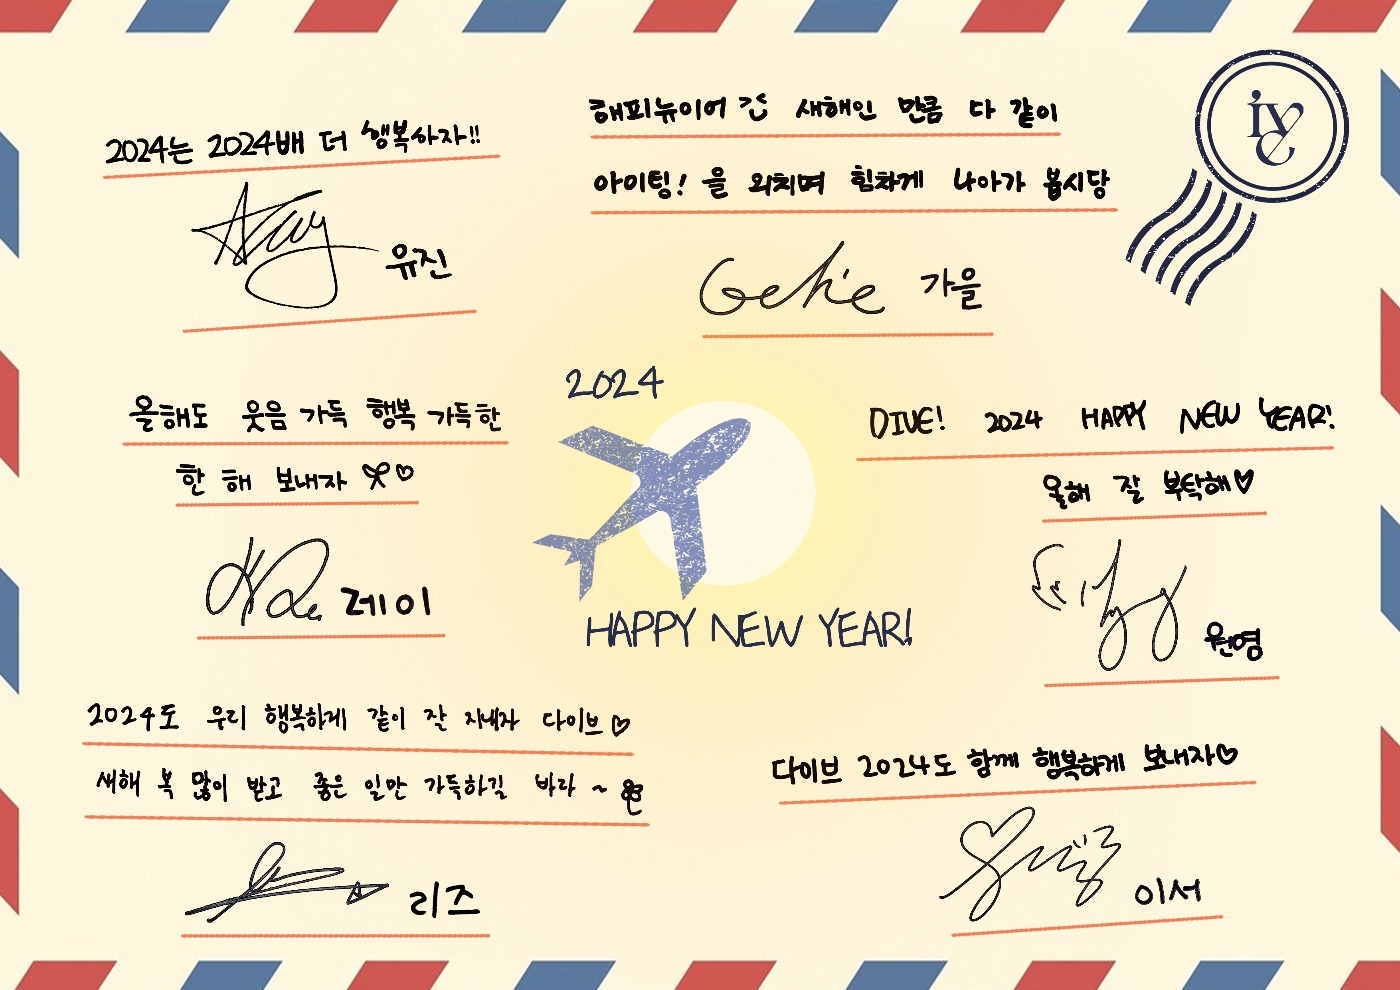 2024는 2024배 더 행복하자!!
유진
해피뉴이어 새해인 만큼 다 같이
아이팅! 을 외치며 힘차게 나아가 봅시당
가을
ive
올해도 웃음 가득 행복 가득한
한 해 보내자 ♡
레이
2024
HAPPY NEW YEAR!
DIVE! 2024 HAPPY NEW YEAR!
올해 잘 부탁해♡
원영
2024도 우리 행복하게 같이 잘 지내자 다이브♡
새해 복 많이 받고 좋은 일만 가득하길 바라 ~
리즈
다이브 2024도 함께 행복하게 보내자♡
이서